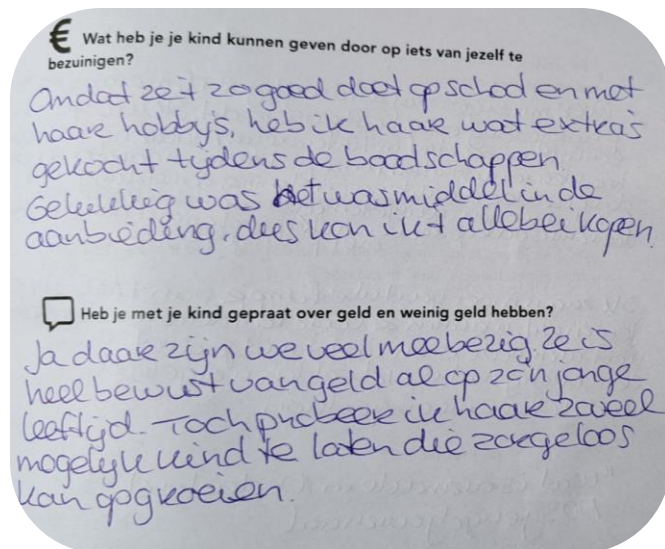 € Wat heb je je kind kunnen geven door op iets van jezelf te
bezuinigen?
Omdat ze 't zo goed doet op school en met
haar hobby's, heb ik haar wat extra's
gekocht tijdens de boodschappen.
Gelukkig was het wasmiddel in de
aanbieding, dus kon ik 't allebei kopen.
Heb je met je kind gepraat over geld en weinig geld hebben?
Ja daar zijn we veel mee bezig. Ze is
heel bewust van geld al op zo'n jonge
leeftijd. Toch probeer ik haar zoveel
mogelijk kind te laten die zorgeloos
kan opgroeien.